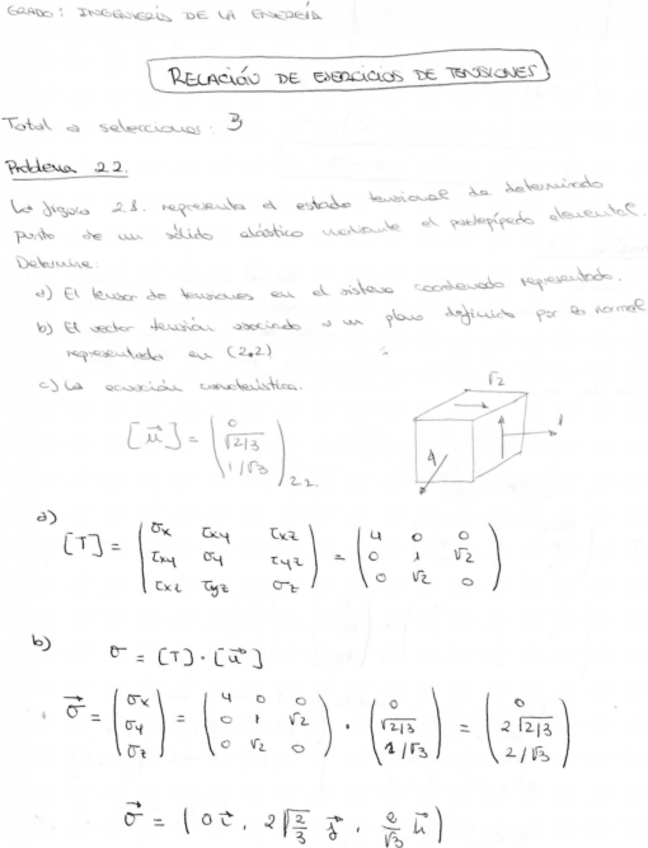 GRADO: INGENIERÍA DE LA ENERGÍA
RELACIÓN DE EJERCICIOS DE TENSIONES
Total a seleccionar: 3
Problema 2.2.
La figura 2.1. representa el estado tensional de determinado
punto de un sólido elástico mediante el paralepípedo elemental.
Determine:
a) El tensor de tensiones en el sistema coordenado representado.
b) El vector tensión asociado a un plano definido por la normal
representada en (2.2)
c) La ecuación característica.
√2
[u⃗] = (0 √2/3 1/√3) 2.2.
1
4
a)
[T] = (σx τxy τxz τxy σy τyz τxz τyz σz) = (4 0 0 0 1 √2 0 √2 0)
b)
σ = [T] · [u⃗]
σ⃗ = (σx σy σz) = (4 0 0 0 1 √2 0 √2 0) · (0 √2/3 1/√3) = (0 2√2/3 2/√3)
σ⃗ = (0 i⃗, 2√2/3 j⃗, 2/√3 k⃗)